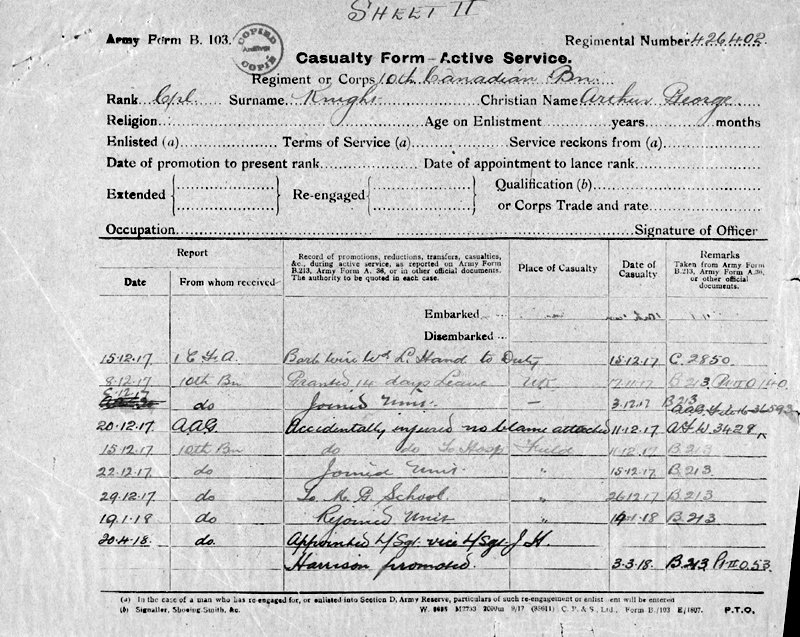 SHEET II
Army Form B. 103.
COPIED
Archives
COPIE
Regimental Number 426402
Casualty Form—Active Service.
Regiment or Corps 10th Canadian Bn.
Rank Cpl Surname Knight Christian Name Arthur George
Religion Age on Enlistment years months
Enlisted (a) Terms of Service (a) Service reckons from (a)
Date of promotion to present rank Date of appointment to lance rank
Extended Re-engaged Qualification (b)
or Corps Trade and rate
Occupation Signature of Officer
Report
Date From whom received
Record of promotions, reductions, transfers, casualties,
&c., during active service, as reported on Army Form
B.213, Army Form A. 36, or in other official documents.
The authority to be quoted in each case.
Place of Casualty
Date of
Casualty
Remarks
Taken from Army Form
B.213, Army Form A.36,
or other official
documents.
Embarked
Disembarked
15.12.17 1 C.F.A. Barb Wire Wd L. Hand to Duty 15.12.17 C.2850
8.12.17 10th Bn Granted 14 days Leave UK B 213 Pt II O 140
8.12.17 do Joined Unit — 3.12.17 B 213
20.12.17 A.A.G. Accidentally injured no blame attached 11.12.17 A.F.W. 3428
15.12.17 10th Bn do do To Hosp Field 11.12.17 B 213
22.12.17 do Joined Unit " 15.12.17 B 213
29.12.17 do To School. " 26.12.17 B 213
19.1.18 do Rejoined Unit " 1.18 B 213
20.4.18. do. Appointed L/Sgt. vice L/Sgt. J. H.
Harrison promoted. 3-3-18. B.213 Pt II O.53.
(a) In the case of a man who has re-engaged for, or enlisted into Section D, Army Reserve, particulars of such re-engagement or enlistment will be entered
(b) Signaller, Shoeing Smith, &c. C. P. & S., Ltd., Form B./103 E/1607. P.T.O.